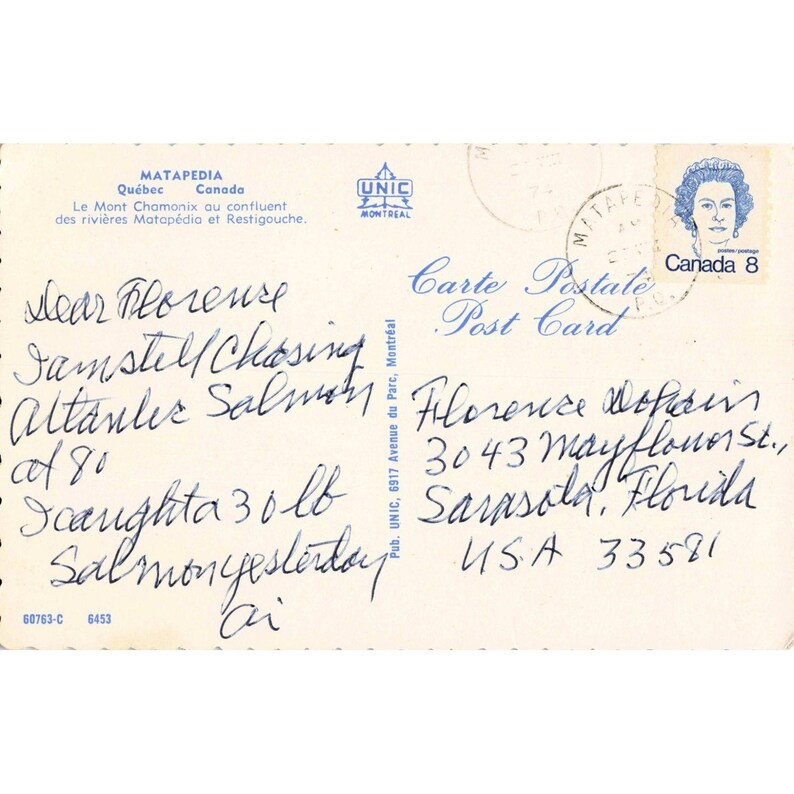 MATAPEDIA
Québec Canada
Le Mont Chamonix au confluent
des rivières Matapédia et Restigouche.
UNIC
MONTREAL
MATAPEDIA
P.Q.
postes/postage
Canada 8
Carte Postale
Post Card
Pub. UNIC, 6917 Avenue du Parc, Montréal
Dear Florence
I am still Chasing
Atlantic Salmon
at 80
I caught a 30 lb
Salmon yesterday
Florence
3043 Mayflower St.,
Sarasota, Florida
USA 33581
60763-C 6453